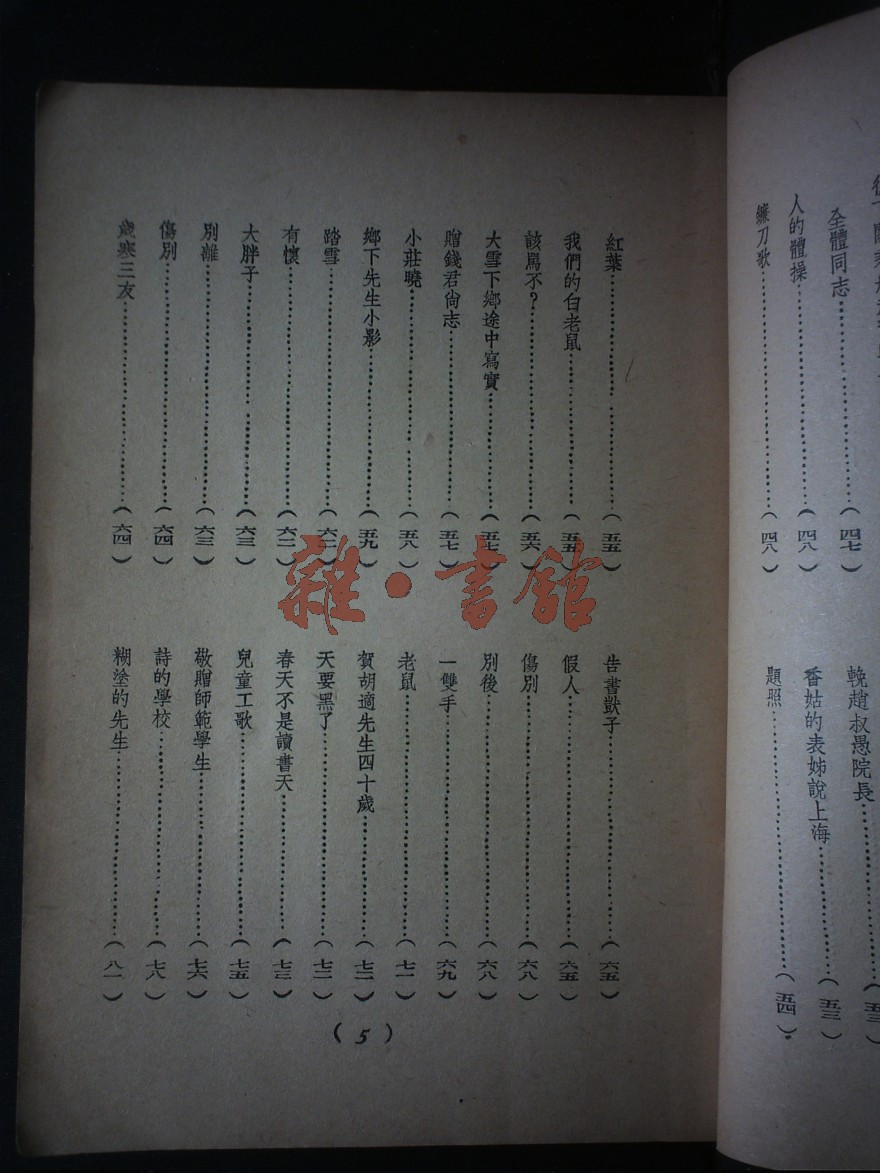 全體同志……(四七)
人的體操……(四八)
鐮刀歌……(四八)
輓趙叔愚院長……(五三)
香姑的表姊說上海……(五三)
題照……(五四)
紅葉……(五五)
我們的白老鼠……(五五)
該罵不?……(五六)
大雪下鄉途中寫實……(五七)
贈錢君尙志……(五七)
小莊曉……(五八)
鄉下先生小影……(五九)
踏雪……
有懷……(六二)
大胖子……(六三)
別離……(六三)
傷別……(六四)
歲寒三友……(六四)
告書獃子……(六五)
假人……(六五)
傷別……(六八)
別後……(六八)
一雙手……(六九)
老鼠……(七一)
賀胡適先生四十歲……(七二)
天要黑了……(七二)
春天不是讀書天……(七三)
兒童工歌……(七五)
敬贈師範學生……(七六)
詩的學校……(七八)
糊塗的先生……(八一)
(5)
雜·書館